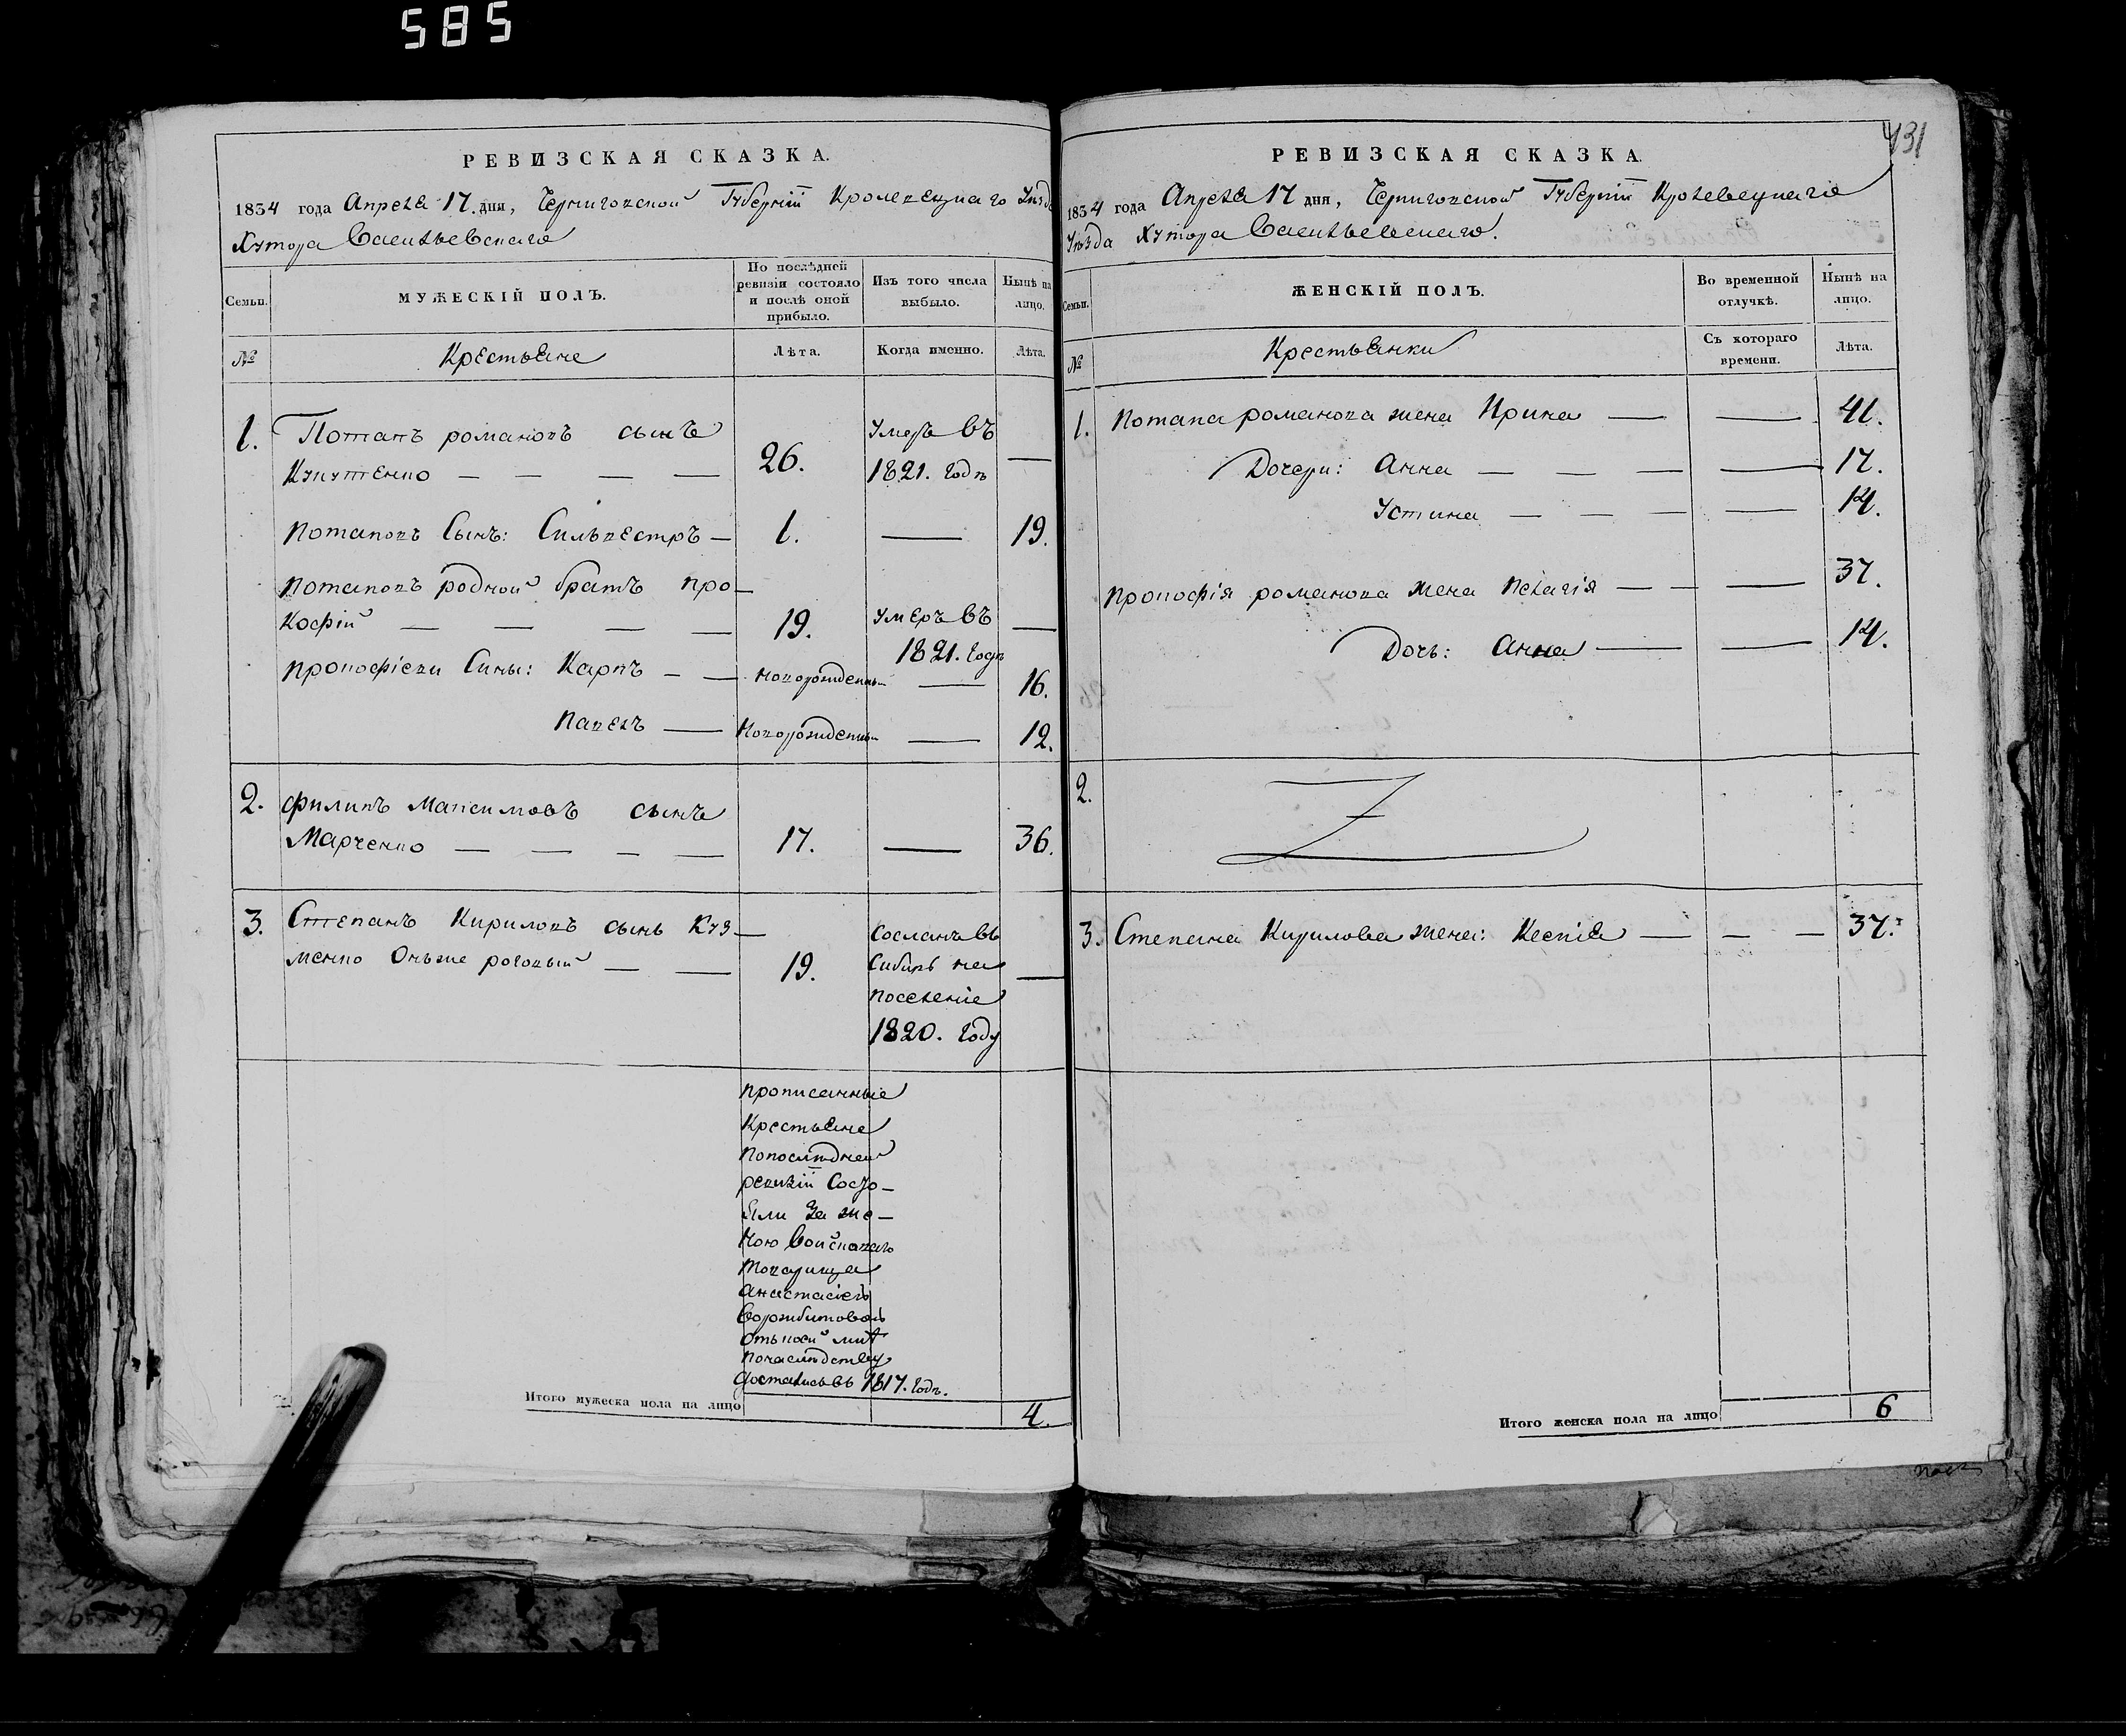 585
РЕВИЗСКАЯ СКАЗКА.
1834 года Апреля 17. дня, Черниговской Губерніи Кролевецкаго Уезда
Хутора Васильевскаго
Семьи.
МУЖЕСКІЙ ПОЛЪ.
По послѣдней ревизіи состояло и послѣ оной прибыло.
Изъ того числа выбыло.
Нынѣ на лицо.
№
Крестьяне
Лѣта.
Когда именно.
Лѣта.
1. Потапъ романовъ сынъ
Кукутенко — — — — 26. Умеръ въ 1821. годѣ —
Потаповъ Сынъ: Сильвестръ — 1. — 19.
Потаповъ родной братъ Про—
кофій — — — — 19. Умеръ въ 1821. годѣ —
Прокофіеви Сины: Карпъ — — новорожденны — 16.
Павелъ — Новорожденны — 12.
2. Филипъ Максимовъ сынъ
Марченко — — — — 17. — 36.
3. Степанъ Кириловъ сынъ Куз—
менко Онъже роговый — — 19. Сосланъ въ
Сибирь на —
поселеніе
1820. году
прописанные
Крестьяне
Попоследней
ревизіи Состо—
яли За же—
ною Войсковаго
Товарища
Анастасіею
Воржбитовой
Отъ коей мне
Понаследству
Достались въ 1817. годѣ.
Итого мужеска пола на лицо 4.
431
РЕВИЗСКАЯ СКАЗКА.
1834 года Апреля 17 дня, Черниговской Губерніи Кролевецкаго
Уезда Хутора Васильевскаго.
Семьи.
ЖЕНСКІЙ ПОЛЪ.
Во временной отлучкѣ.
Нынѣ на лицо.
№
Крестьянки
Съ котораго времени.
Лѣта.
1. Потапа романова жена Ирина — — 41.
Дочери: Анна — — — — 17.
Устина — — — — 14.
Прокофія романова жена Пелагія — — — 37.
Дочь: Анна — — 14.
2.
3. Степана Кирилова жена: Ксенія — — — 37.
Итого женска пола на лицо 6